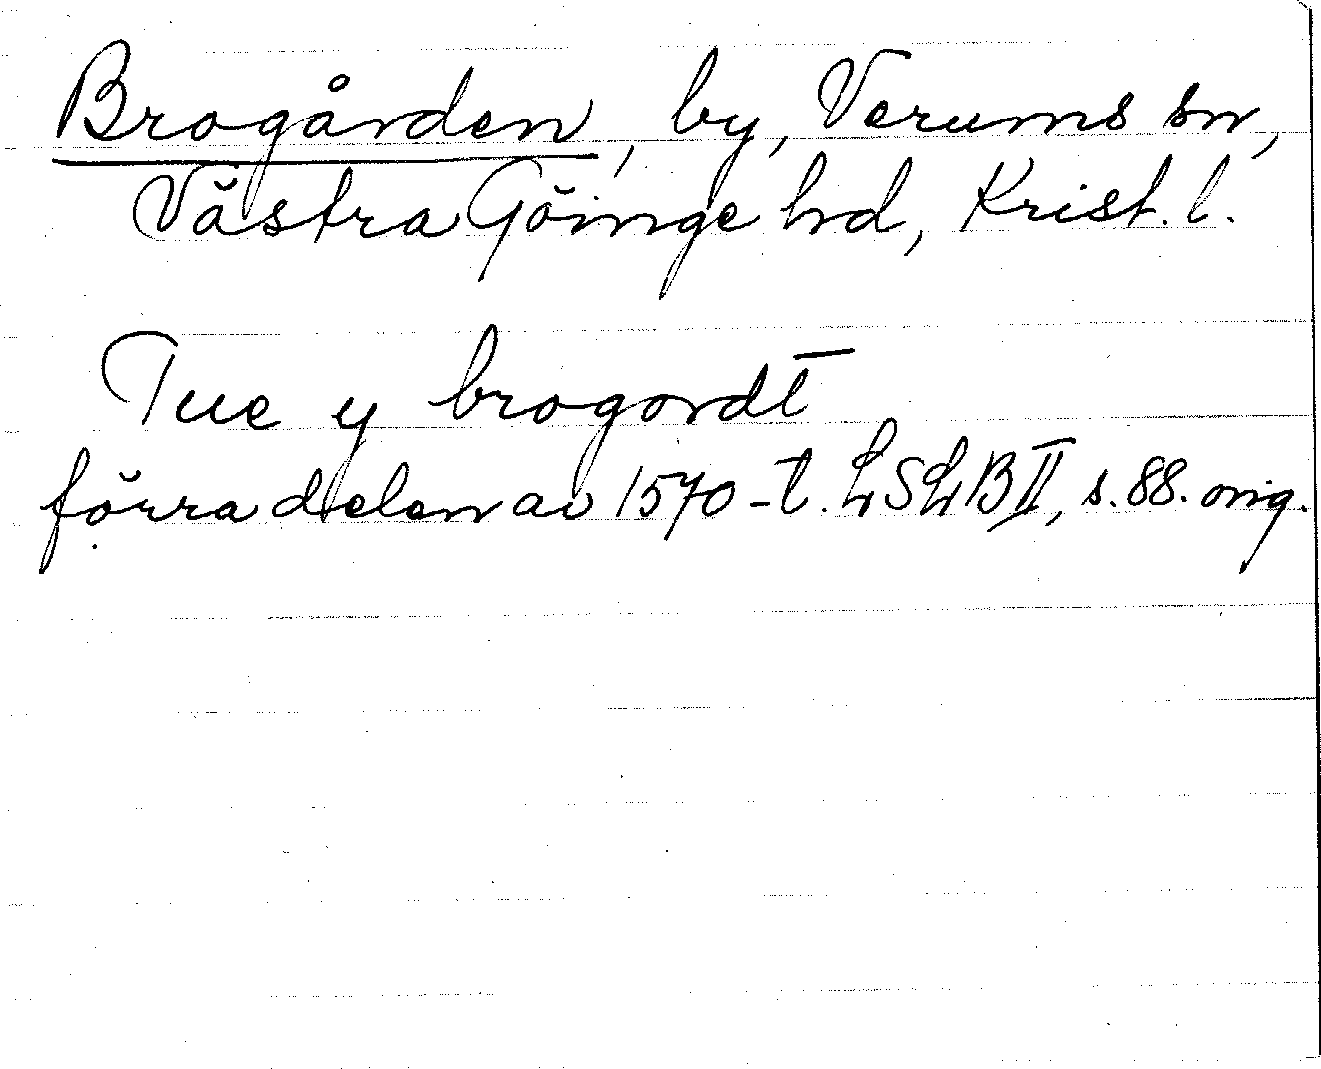 Brogården, by, Verums sn,
Västra Göinge hd, Krist. l.
Tue y brogordt̄
förra delen av 1570-t. LSLB II, s. 88. orig.